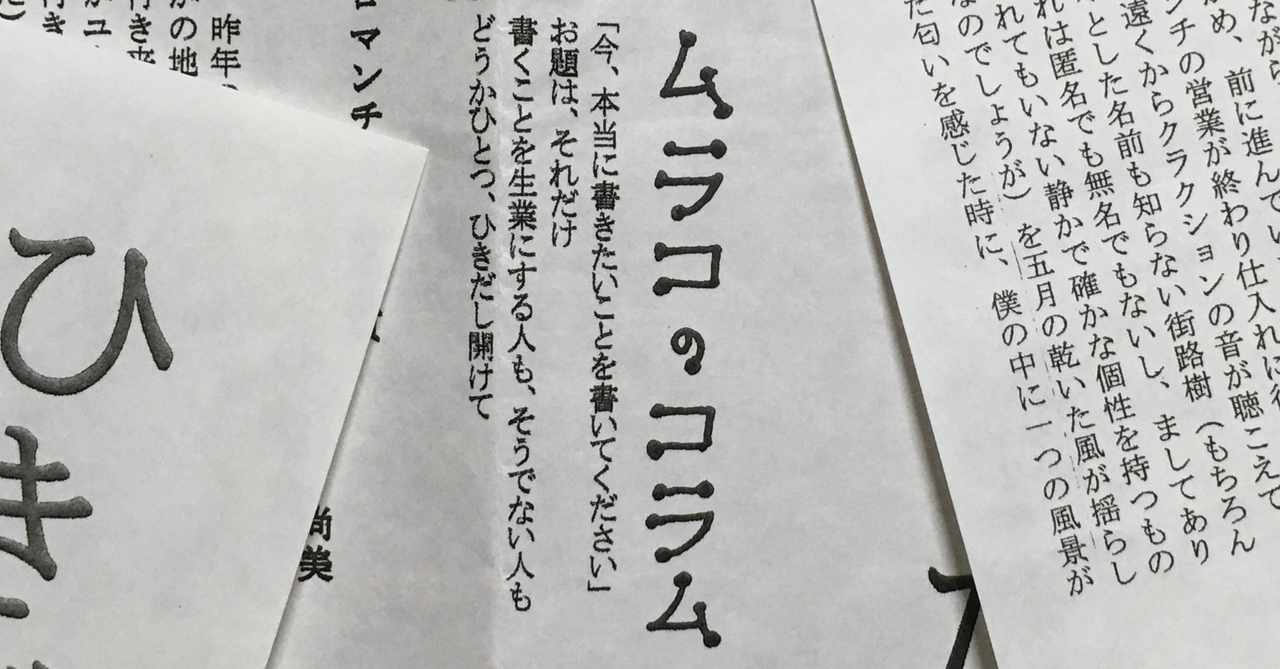 ながら
め、前に進んでい
ンチの営業が終わり仕入れに行
遠くからクラクションの音が聴こえて
とした名前も知らない街路樹（もちろん
れは匿名でも無名でもないし、ましてあり
れてもいない静かで確かな個性を持つもの
なのでしょうが）を五月の乾いた風が揺らし
た匂いを感じた時に、僕の中に一つの風景が
ムラコのコラム
「今、本当に書きたいことを書いてください」
お題は、それだけ
書くことを生業にする人も、そうでない人も
どうかひとつ、ひきだし開けて
ロマンチ
尚美
昨年、
の地
行き来
ユ
行き
ひき